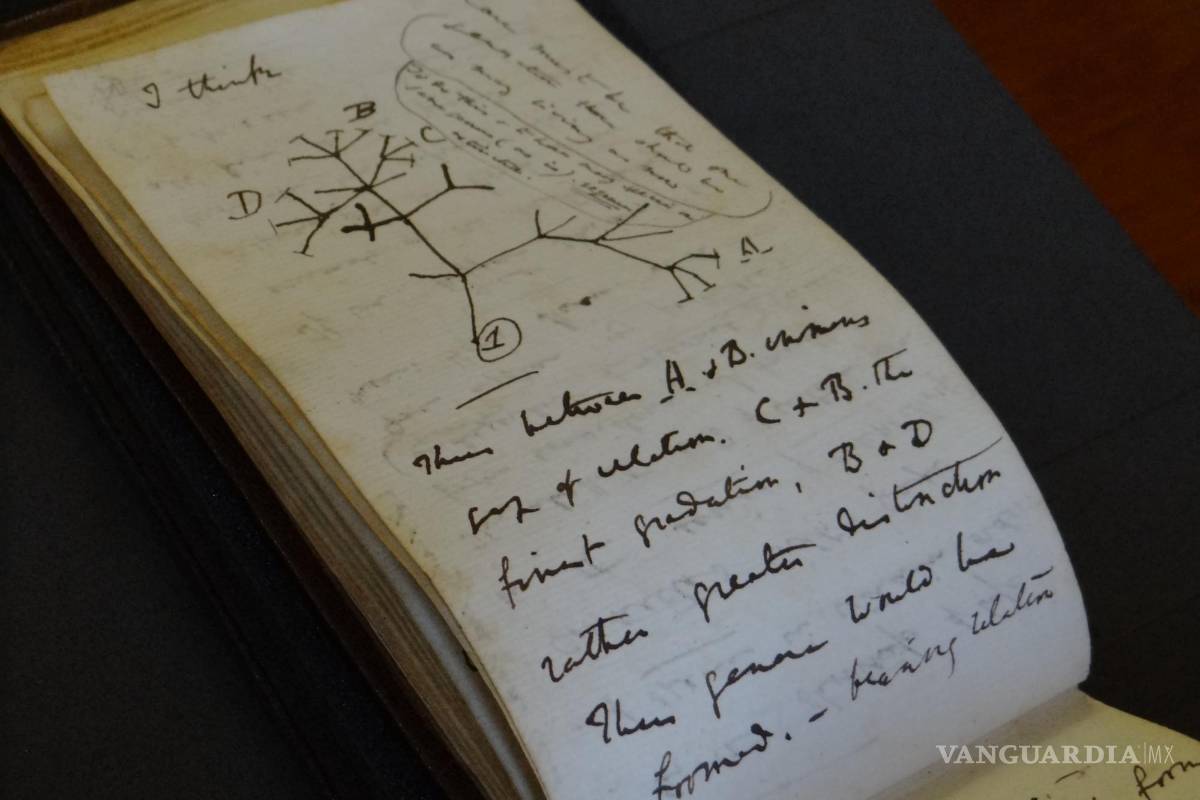 I think
one must be
that one
Case
then should be
as many living as now
To do this & to have many species in
same genus (as is) requires
extinction.
B
C
D
A
1
Thus between A & B. immens
gap of relation. C & B. The
finest gradation, B & D
rather greater distinction
Thus genera would be
formed. — bearing relation
form
VANGUARDIA|MX